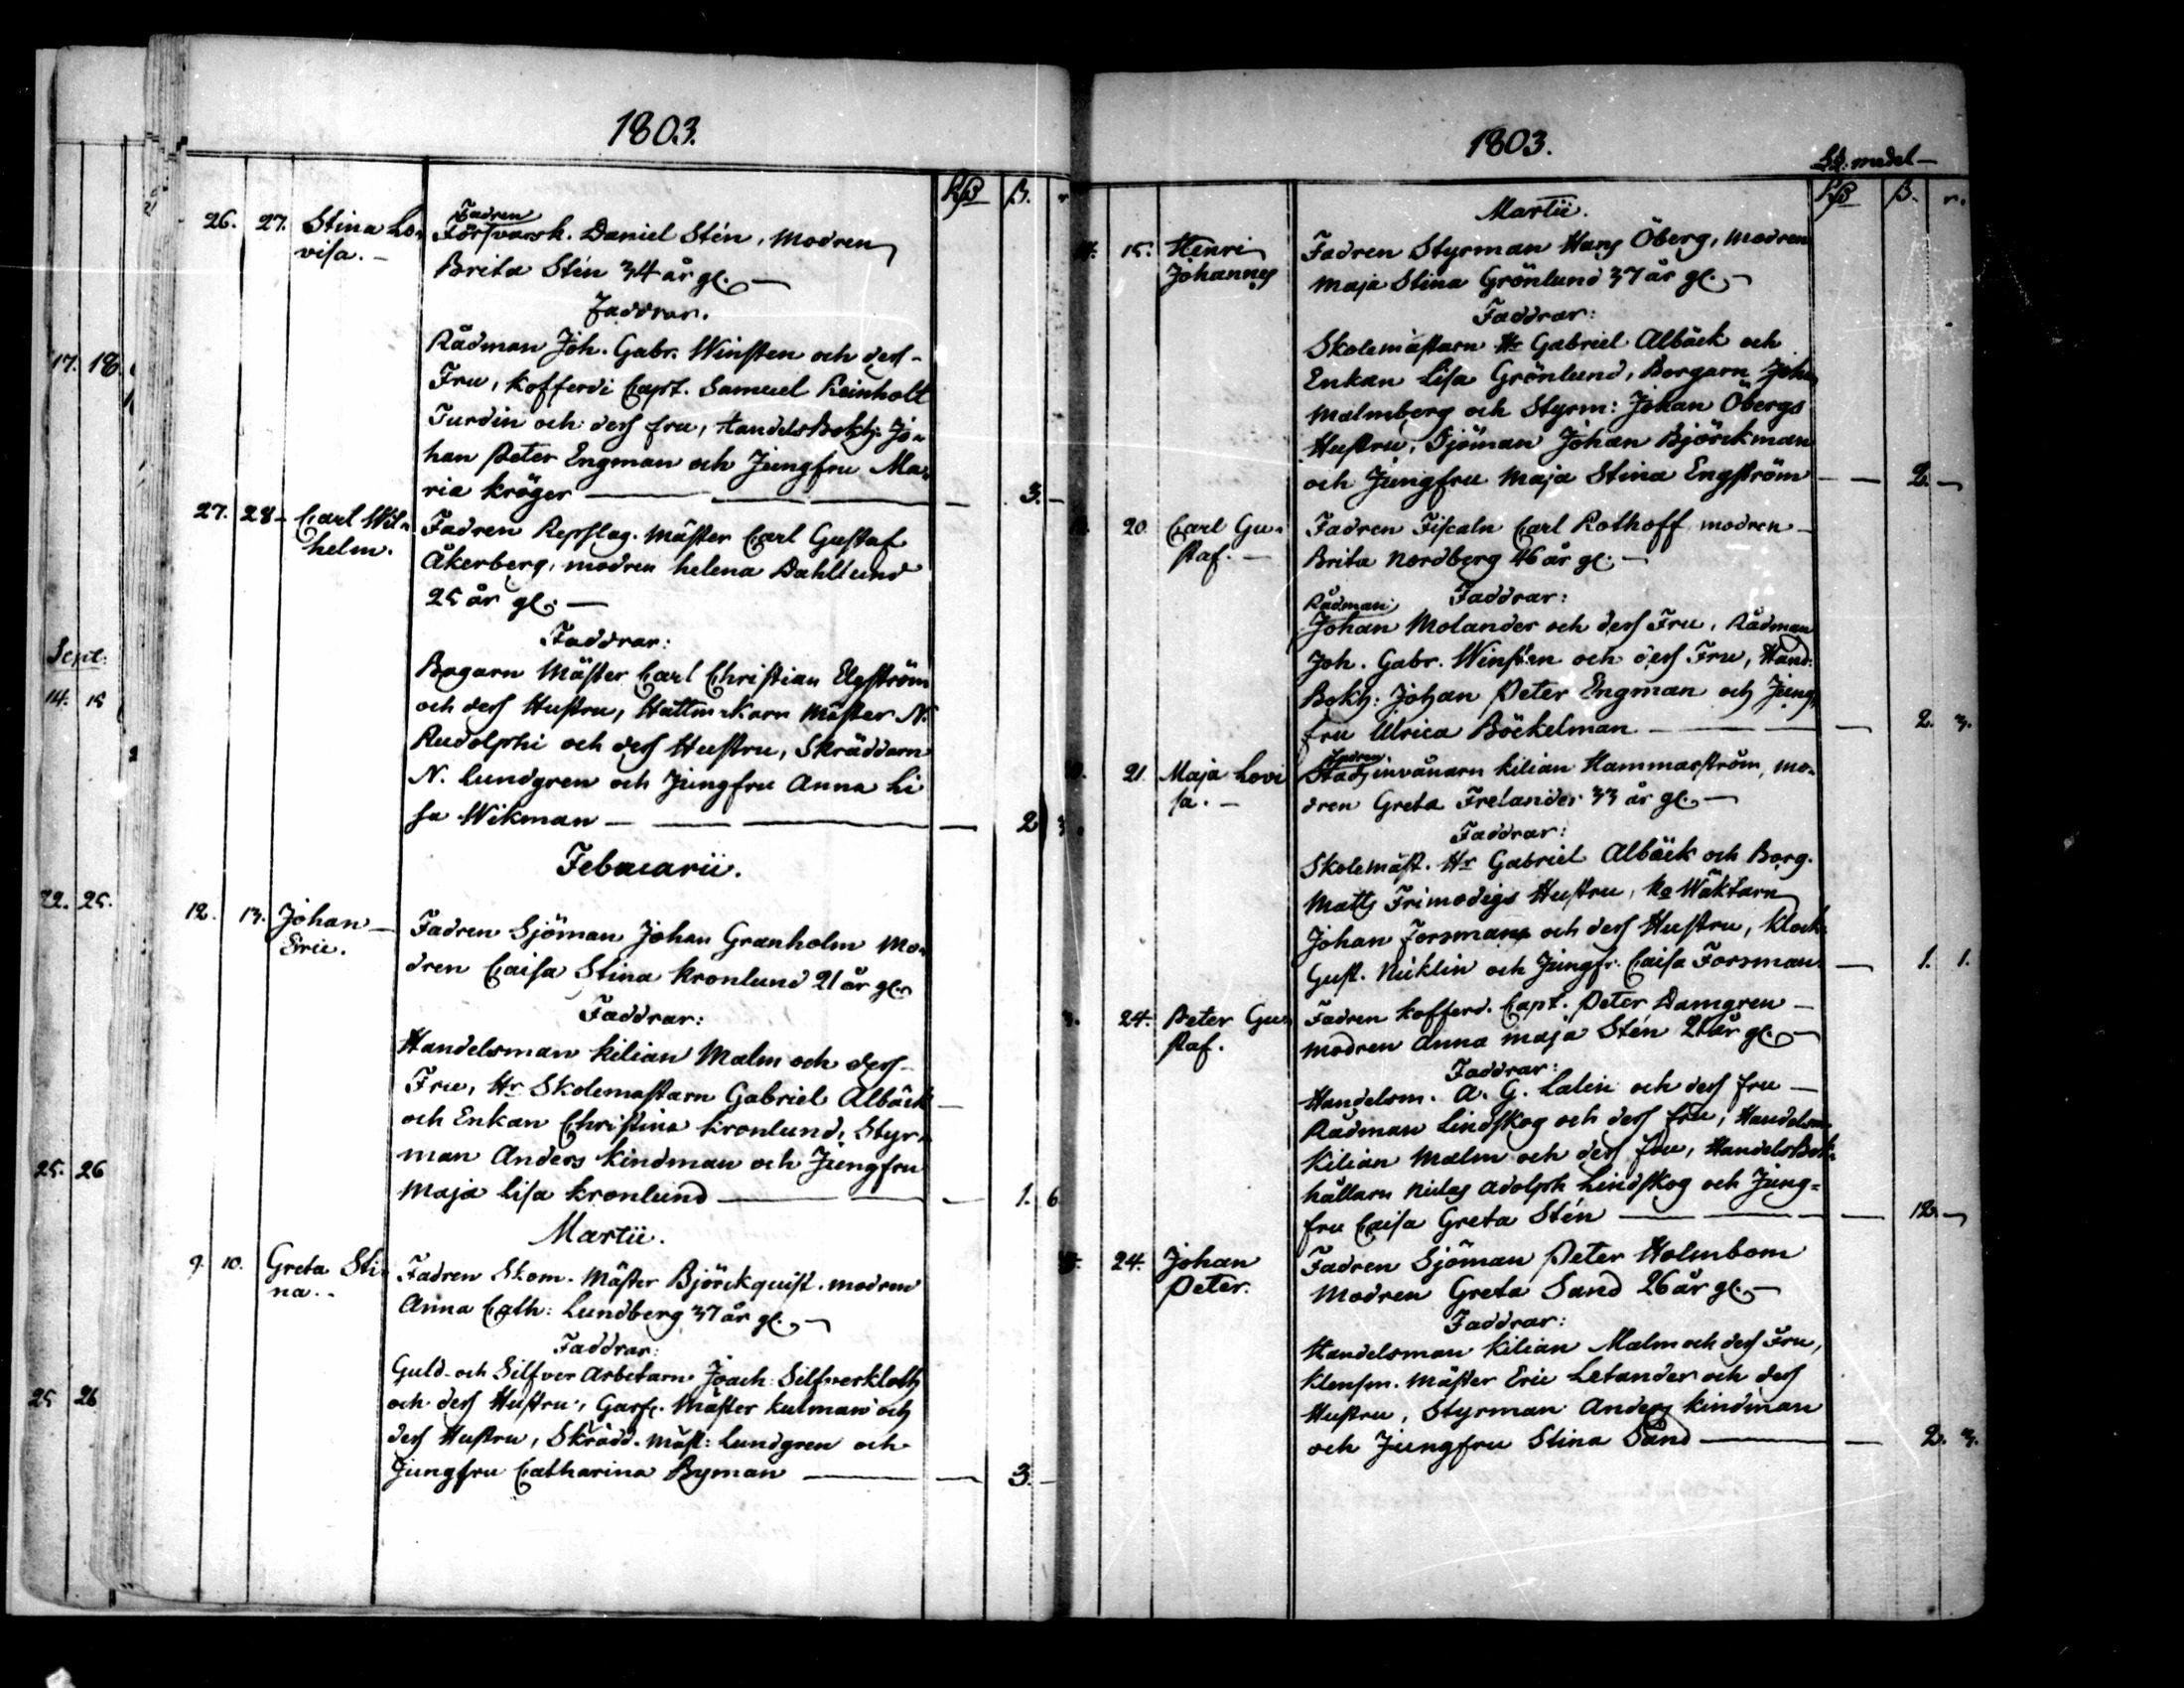 1803.
Rß ß. r
26. 27. Stina Lo- Fadren Försvarsk. Daniel Stén, Modren
visa. – Brita Stén 34 år gl. –
Faddrar.
Rådman Joh. Gabr. Winsten och dess –
Fru, Kofferdi Capt. Samuel Reinholt
Turdin och dess fru, HandelsBokh: Jo-
han Peter Engman och Jungfru Ma-
ria Kröger – 3. –
27. 28 – Carl Wil- Fadren Repslag. Mäster Carl Gustaf
helm. Åkerberg, modren helena Dahllund
25 år gl. –
Faddrar:
Bagarn Mäster Carl Christian Elgström
och dess Hustru, Hattmakarn Mäster N.
Rudolphi och dess Hustru, Skräddarn
N. Lundgren och Jungfru Anna Li
sa Wikman – 2 3
Februarii.
12. 13. Johan – Fadren Sjöman Johan Granholm Mo-
Eric. dren Caisa Stina Kronlund 21 år gl.
Faddrar:
Handelsman Kilian Malm och dess –
Fru, Hr Skolemastarn Gabriel Albäck
och Enkan Christina Kronlund, Styr-
man Anders Kindman och Jungfru
Maja Lisa Kronlund – 1. 6
Martii.
9. 10. Greta Sti- Fadren Skom. Mäster Björckquist. modren
na. – Anna Cath: Lundberg 37 år gl. –
Faddrar:
Guld- och Silfver Arbetarn Joach: Silfverkloth
och dess Hustru, Garf. Mäster Kulman och
dess Hustru, Skrädd. Mäst: Lundgren och
Jungfru Catharina Byman – 3. –
17. 18.
Sept:
14. 15
22. 25.
25. 26
25 26
1803.
medel –
Rß ß. r.
Martii.
14. 15. Henri Fadren Styrman Hans Öberg, Modren
Johannes Maja Stina Grönlund 37 år gl. –
Faddrar:
Skolemästarn Hr Gabriel Albäck och
Enkan Lisa Grönlund, Borgarn Joh.
Malmberg och Styrm: Johan Öbergs
Hustru, Sjöman Johan Björckman
och Jungfru Maja Stina Engström – 2. –
20. Carl Gu- Fadren Fiscaln Carl Rothoff modren –
staf. – Brita Nordberg 46 år gl. –
Faddrar:
Rådman Johan Molander och dess Fru, Rådman
Joh. Gabr. Winsten och dess Fru, Hand:
Bokh: Johan Peter Engman och Jung-
fru Ulrica Böckelman – 2. 3.
21. Maja Lovi Fadren Stadsinvånarn Kilian Hammarström, Mo-
sa. – dren Greta Frelander 33 år gl. –
Faddrar:
Skolemäst. Hr Gabriel Albäck och Borg.
Matts Frimodigs Hustru, Wäktarn
Johan Forsman och dess Hustru, Klock.
Gust. Nicklin och Jungfr. Caisa Forsman. – 1. 1.
24. Peter Gu- Fadren Kofferd. Capt. Peter Damgren –
staf. modren Anna Maja Stén 21 år gl. –
Faddrar:
Handelsm. A. G. Lalin och dess fru –
Rådman Lindskog och dess fru, Handelsm.
Kilian Malm och dess fru, HandelsBok-
hållarn Niclas Adolph Lindskog och Jung-
fru Caisa Greta Stén – 12. –
24. Johan Fadren Sjöman Peter Holmbom
Peter. Modren Greta Sand 26 år gl. –
Faddrar:
Handelsman Kilian Malm och dess Fru,
Klensm. Mäster Eric Letander och dess
Hustru, Styrman Anders Kindman
och Jungfru Stina Sand – 2. 3.